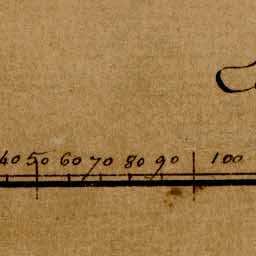 40 50 60 70 80 90 100